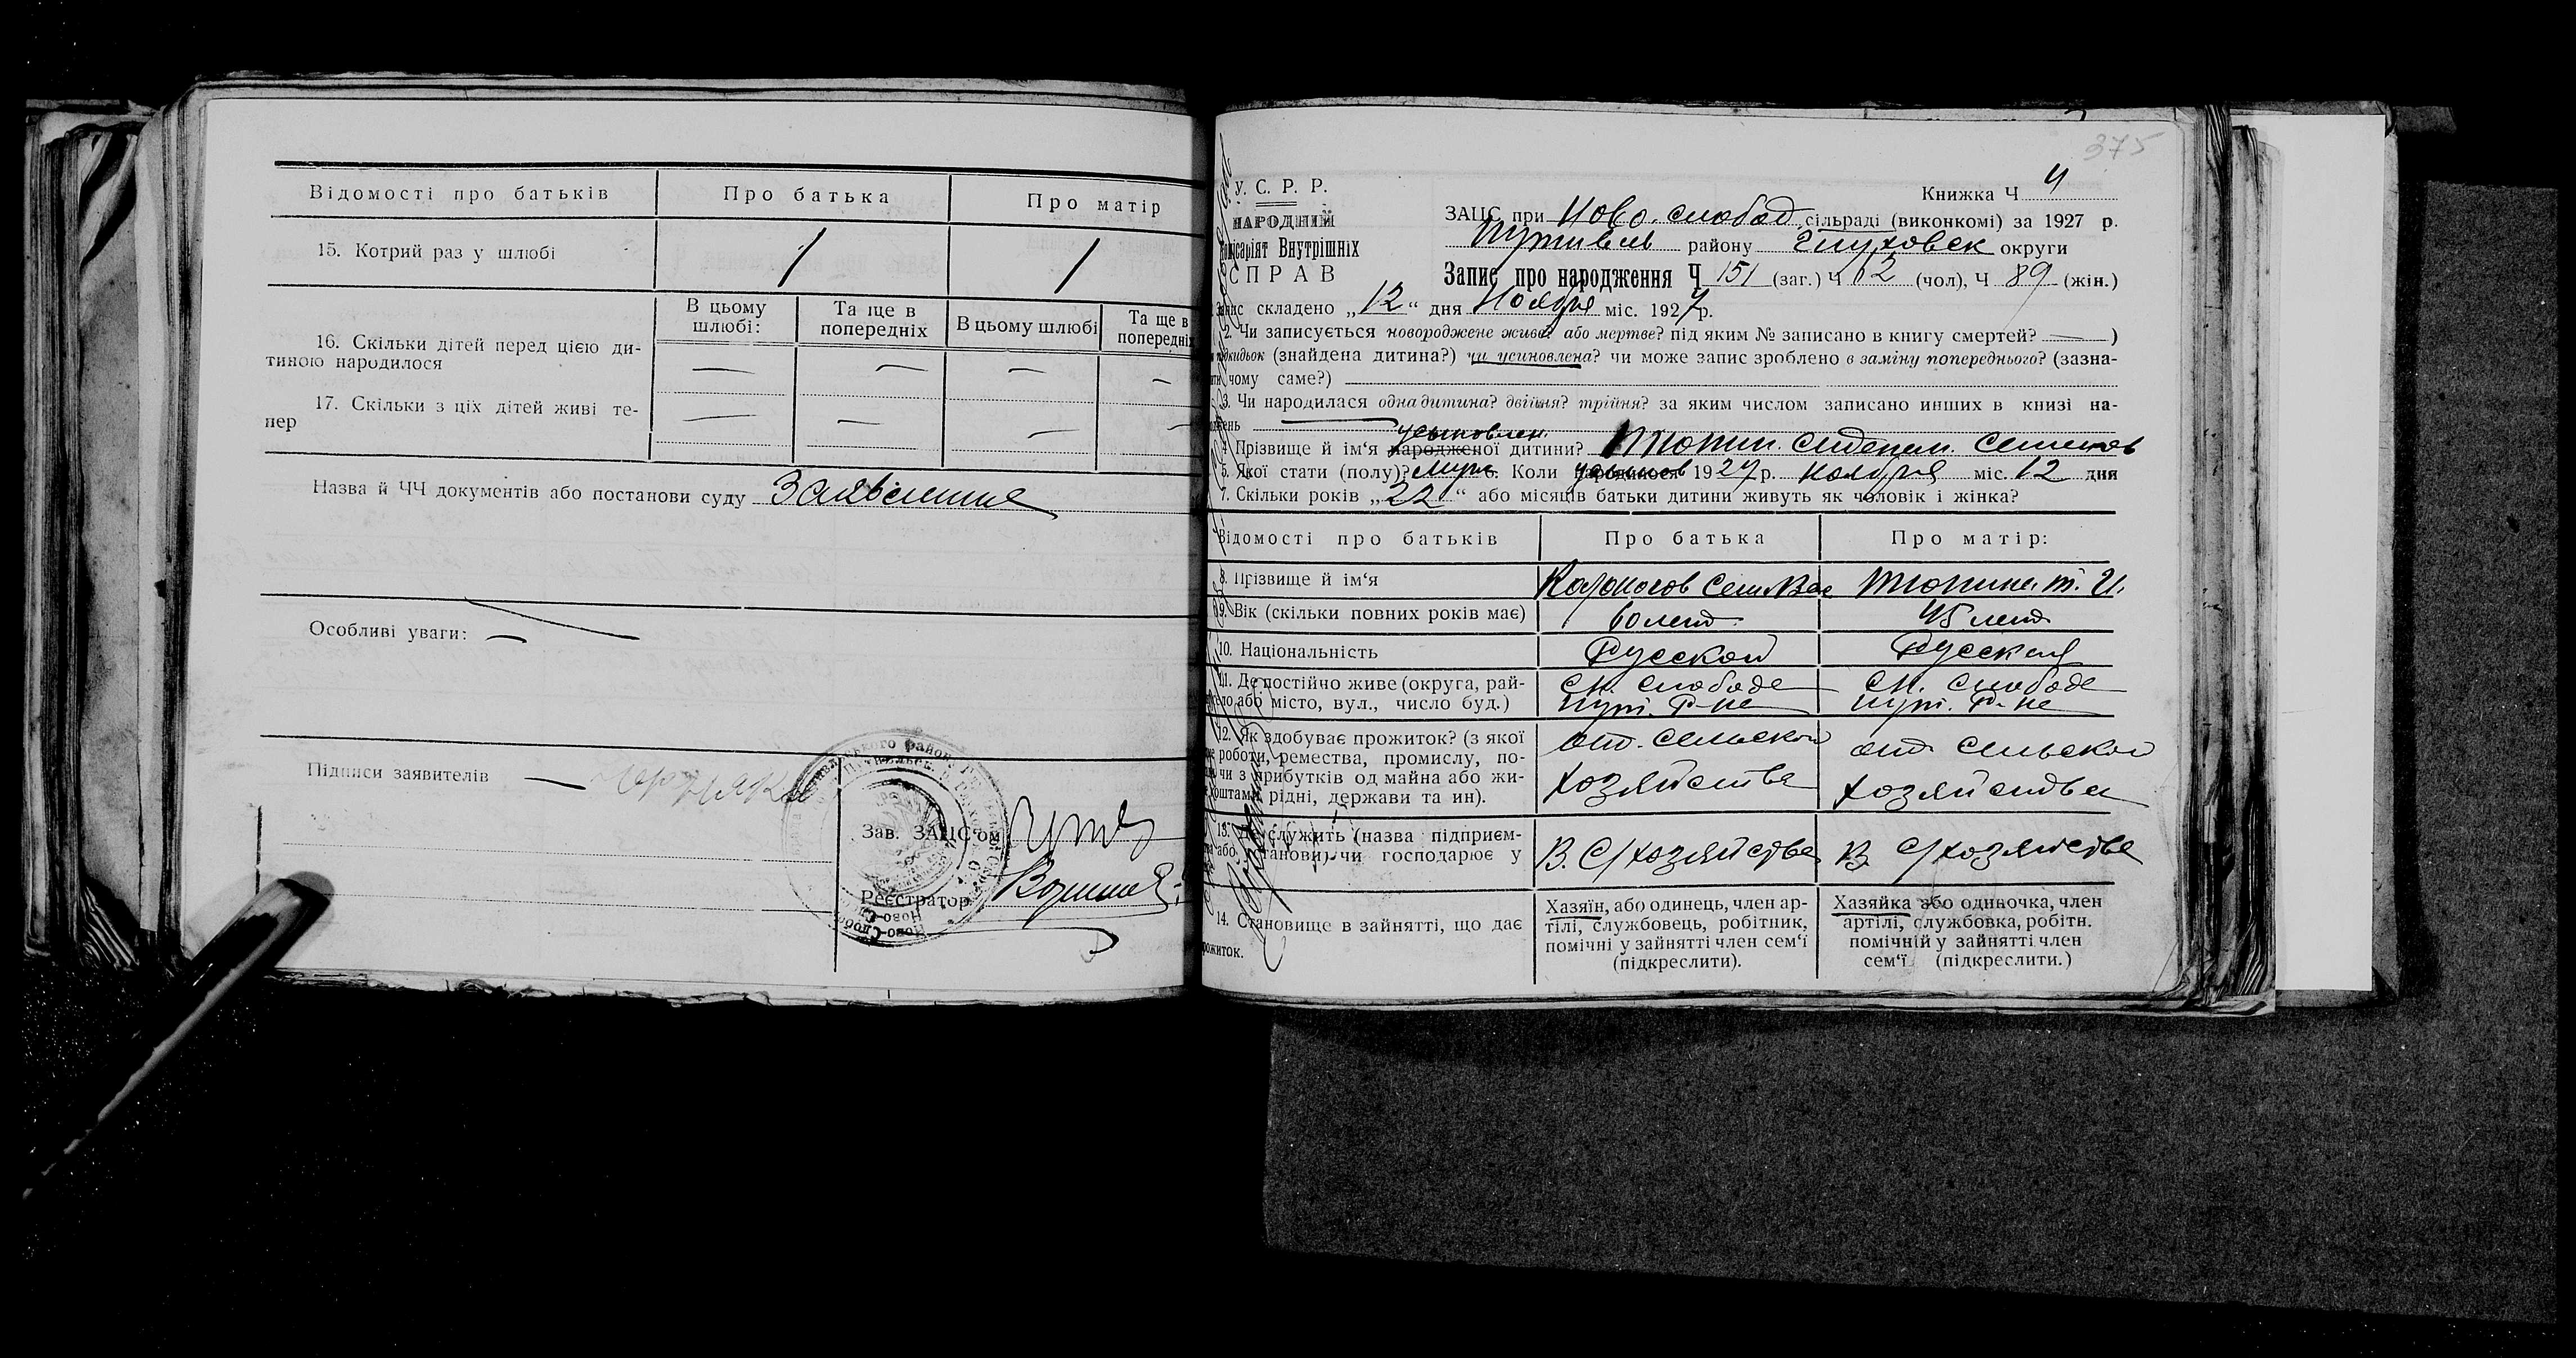 Відомості про батьків
Про батька
Про матір
15. Котрий раз у шлюбі
/
/
В цьому шлюбі:
Та ще в попередніх
В цьому шлюбі
Та ще в попередніх
16. Скільки дітей перед цією ди-
тиною народилося
— — — —
17. Скільки з ціх дітей живі те-
пер
— — — —
Назва й ЧЧ документів або постанови суду Заявление
Особливі уваги: —
Підписи заявителів —
Зав. ЗАЦС'ом
Реєстратор
375
У. С. Р. Р.
НАРОДНІЙ
Комісаріят Внутрішніх
СПРАВ
Книжка Ч 4
ЗАЦС при Ново. слобод сільраді (виконкомі) за 1927 р.
Путивль району Глуховск округи
Запис про народження Ч 151 (заг.) Ч 62 (чол), Ч 89 (жін.)
Запис складено „12“ дня Ноября міс. 1927 р.
2. Чи записується новороджене живе? або мертве? під яким № записано в книгу смертей? — )
підкидьок (знайдена дитина?) чи усиновлена? чи може запис зроблено в заміну попереднього? (зазна-
чити чому саме?)
3. Чи народилася одна дитина? двійня? трійня? за яким числом записано инших в книзі на-
усыновлен.
4. Прізвище й ім'я народженої дитини? Семенов
5. Якої стати (полу)? муж 6. Коли народилося усынов 1927 р. ноября міс. 12 дня
7. Скільки років „22“ або місяців батьки дитини живуть як чоловік і жінка?
Відомості про батьків
Про батька
Про матір:
8. Прізвище й ім'я
Тюпина. Т. И.
9. Вік (скільки повних років має)
60 лет
45 лет
10. Національність
Русский
Русская
11. Де постійно живе (округа, рай-
село або місто, вул., число буд.)
сн. слободе
Пут. Р-не
сн. слободе
Пут. Р-не
12. Як здобуває прожиток? (з якої
роботи, ремества, промислу, по-
чи з прибутків од майна або жи-
коштами рідні, держави та ин).
от. сельского
хозяйства
от сельского
хозяйства
13. Де служить (назва підприєм-
або установи) чи господарює у
В. С/хозяйстве
В С/хозяйстве
14. Становище в зайнятті, що дає
прожиток.
Хазяїн, або одинець, член ар-
тілі, службовець, робітник,
помічні у зайнятті член сем'ї
(підкреслити).
Хазяйка або одиночка, член
артілі, службовка, робітн.
помічній у зайнятті член
сем'ї (підкреслити.)